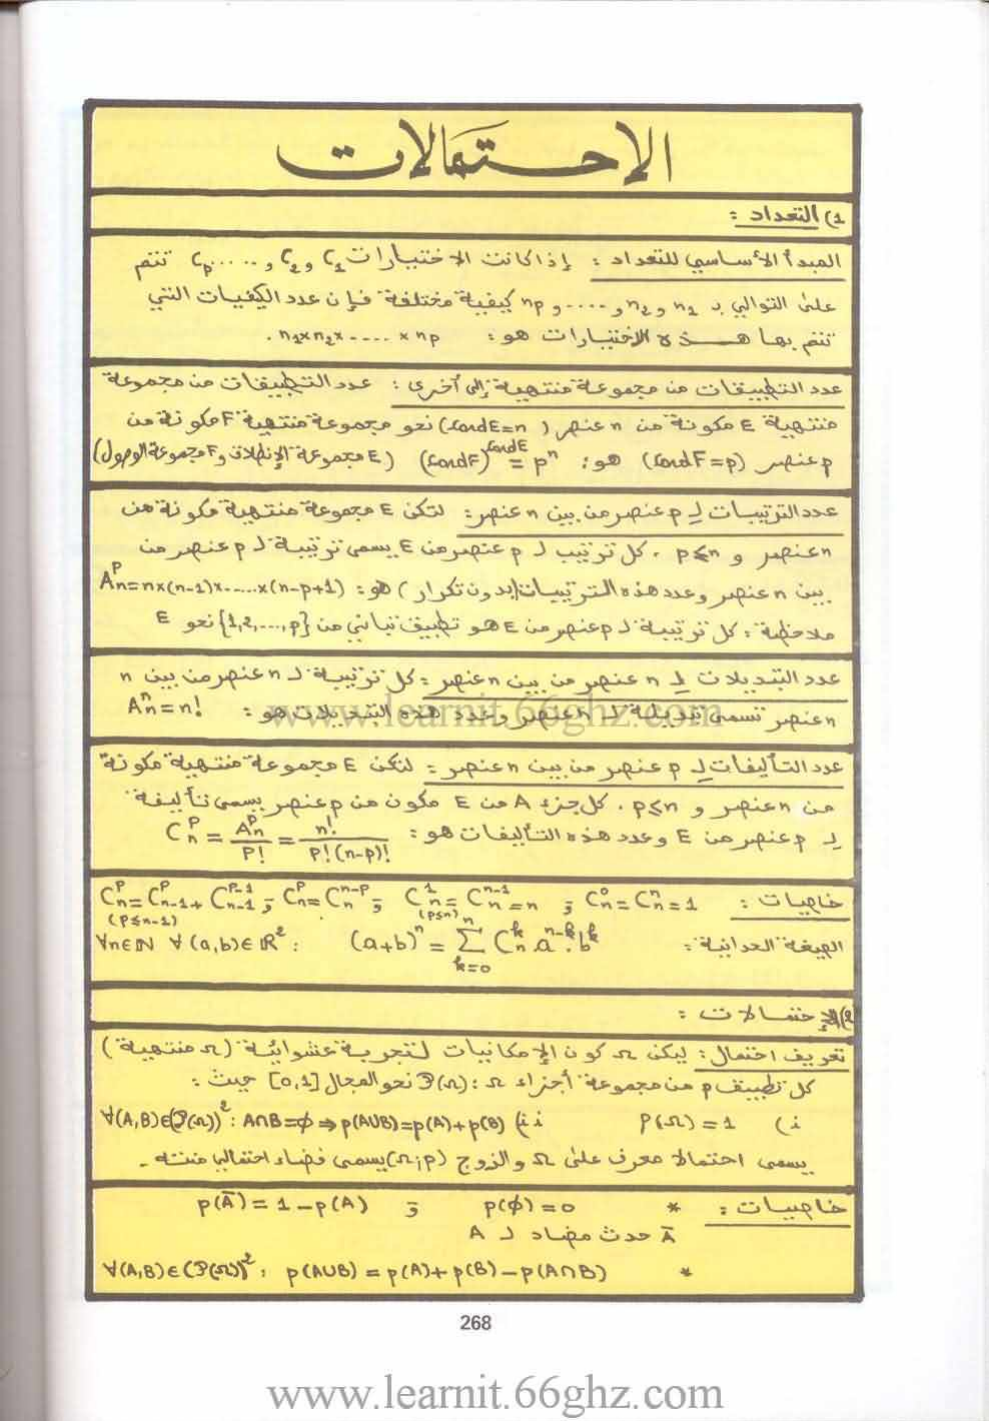 الإحتمالات
1) التعداد :
المبدأ الأساسي للتعداد : إذا كانت الاختيارات C₁ و C₂ و ..... Cp تتم
على التوالي بـ n₁ و n₂ و .... و np كيفية مختلفة فإن عدد الكيفيات التي
تتم بها هذه الاختيارات هو : n₁×n₂×....×np .
عدد التطبيقات من مجموعة منتهية إلى أخرى : عدد التطبيقات من مجموعة
منتهية E مكونة من n عنصر (cardE=n) نحو مجموعة منتهية F مكونة من
p عنصر (cardF=p) هو : (cardF)^cardE = pⁿ (E مجموعة الإنطلاق و F مجموعة الوصول)
عدد الترتيبات لـ p عنصر من بين n عنصر : لتكن E مجموعة منتهية مكونة من
n عنصر و p≤n . كل ترتيب لـ p عنصر من E يسمى ترتيبة لـ p عنصر من
بين n عنصر وعدد هذه الترتيبات (بدون تكرار) هو : A_n^p=n×(n-1)×.....×(n-p+1)
ملاحظة : كل ترتيبة لـ p عنصر من E هو تطبيق تبايني من {1,2,...,p} نحو E
عدد التبديلات لـ n عنصر من بين n عنصر : كل ترتيبة لـ n عنصر من بين n
n عنصر تسمى تبديلة لـ n عنصر وعدد هذه التبديلات هو : A_n^n=n!
www.learnit.66ghz.com
عدد التأليفات لـ p عنصر من بين n عنصر : لتكن E مجموعة منتهية مكونة
من n عنصر و p≤n . كل جزء A من E مكون من p عنصر يسمى تأليفة
لـ p عنصر من E وعدد هذه التأليفات هو : C_n^p = A_n^p/P! = n!/P!(n-p)!
خاصيات : C_n^0=C_n^n=1 ; C_n^1=C_n^{n-1}=n ; C_n^p=C_n^{n-p} (p≤n) ; C_n^p=C_{n-1}^p+C_{n-1}^{p-1} (p≤n-1)
الصيغة الحدانية : ∀n∈ℕ ∀(a,b)∈ℝ² : (a+b)ⁿ = Σ_{k=0}^{n} C_n^k a^{n-k}.b^k
2) الإحتمالات :
تعريف احتمال : ليكن Ω كون الإمكانيات لتجربة عشوائية (Ω منتهية)
كل تطبيق p من مجموعة أجزاء Ω : P(Ω) نحو المجال [0,1] حيث :
i) P(Ω)=1 ii) ∀(A,B)∈(P(Ω))² : A∩B=∅ ⇒ p(A∪B)=p(A)+p(B)
يسمى احتمالا معرف على Ω والزوج (Ω;p) يسمى فضاء احتماليا منته .
خاصيات : * p(∅)=0 و p(Ā)=1-p(A)
Ā حدث مضاد لـ A
* ∀(A,B)∈(P(Ω))² : p(A∪B)=p(A)+p(B)-p(A∩B)
268
www.learnit.66ghz.com